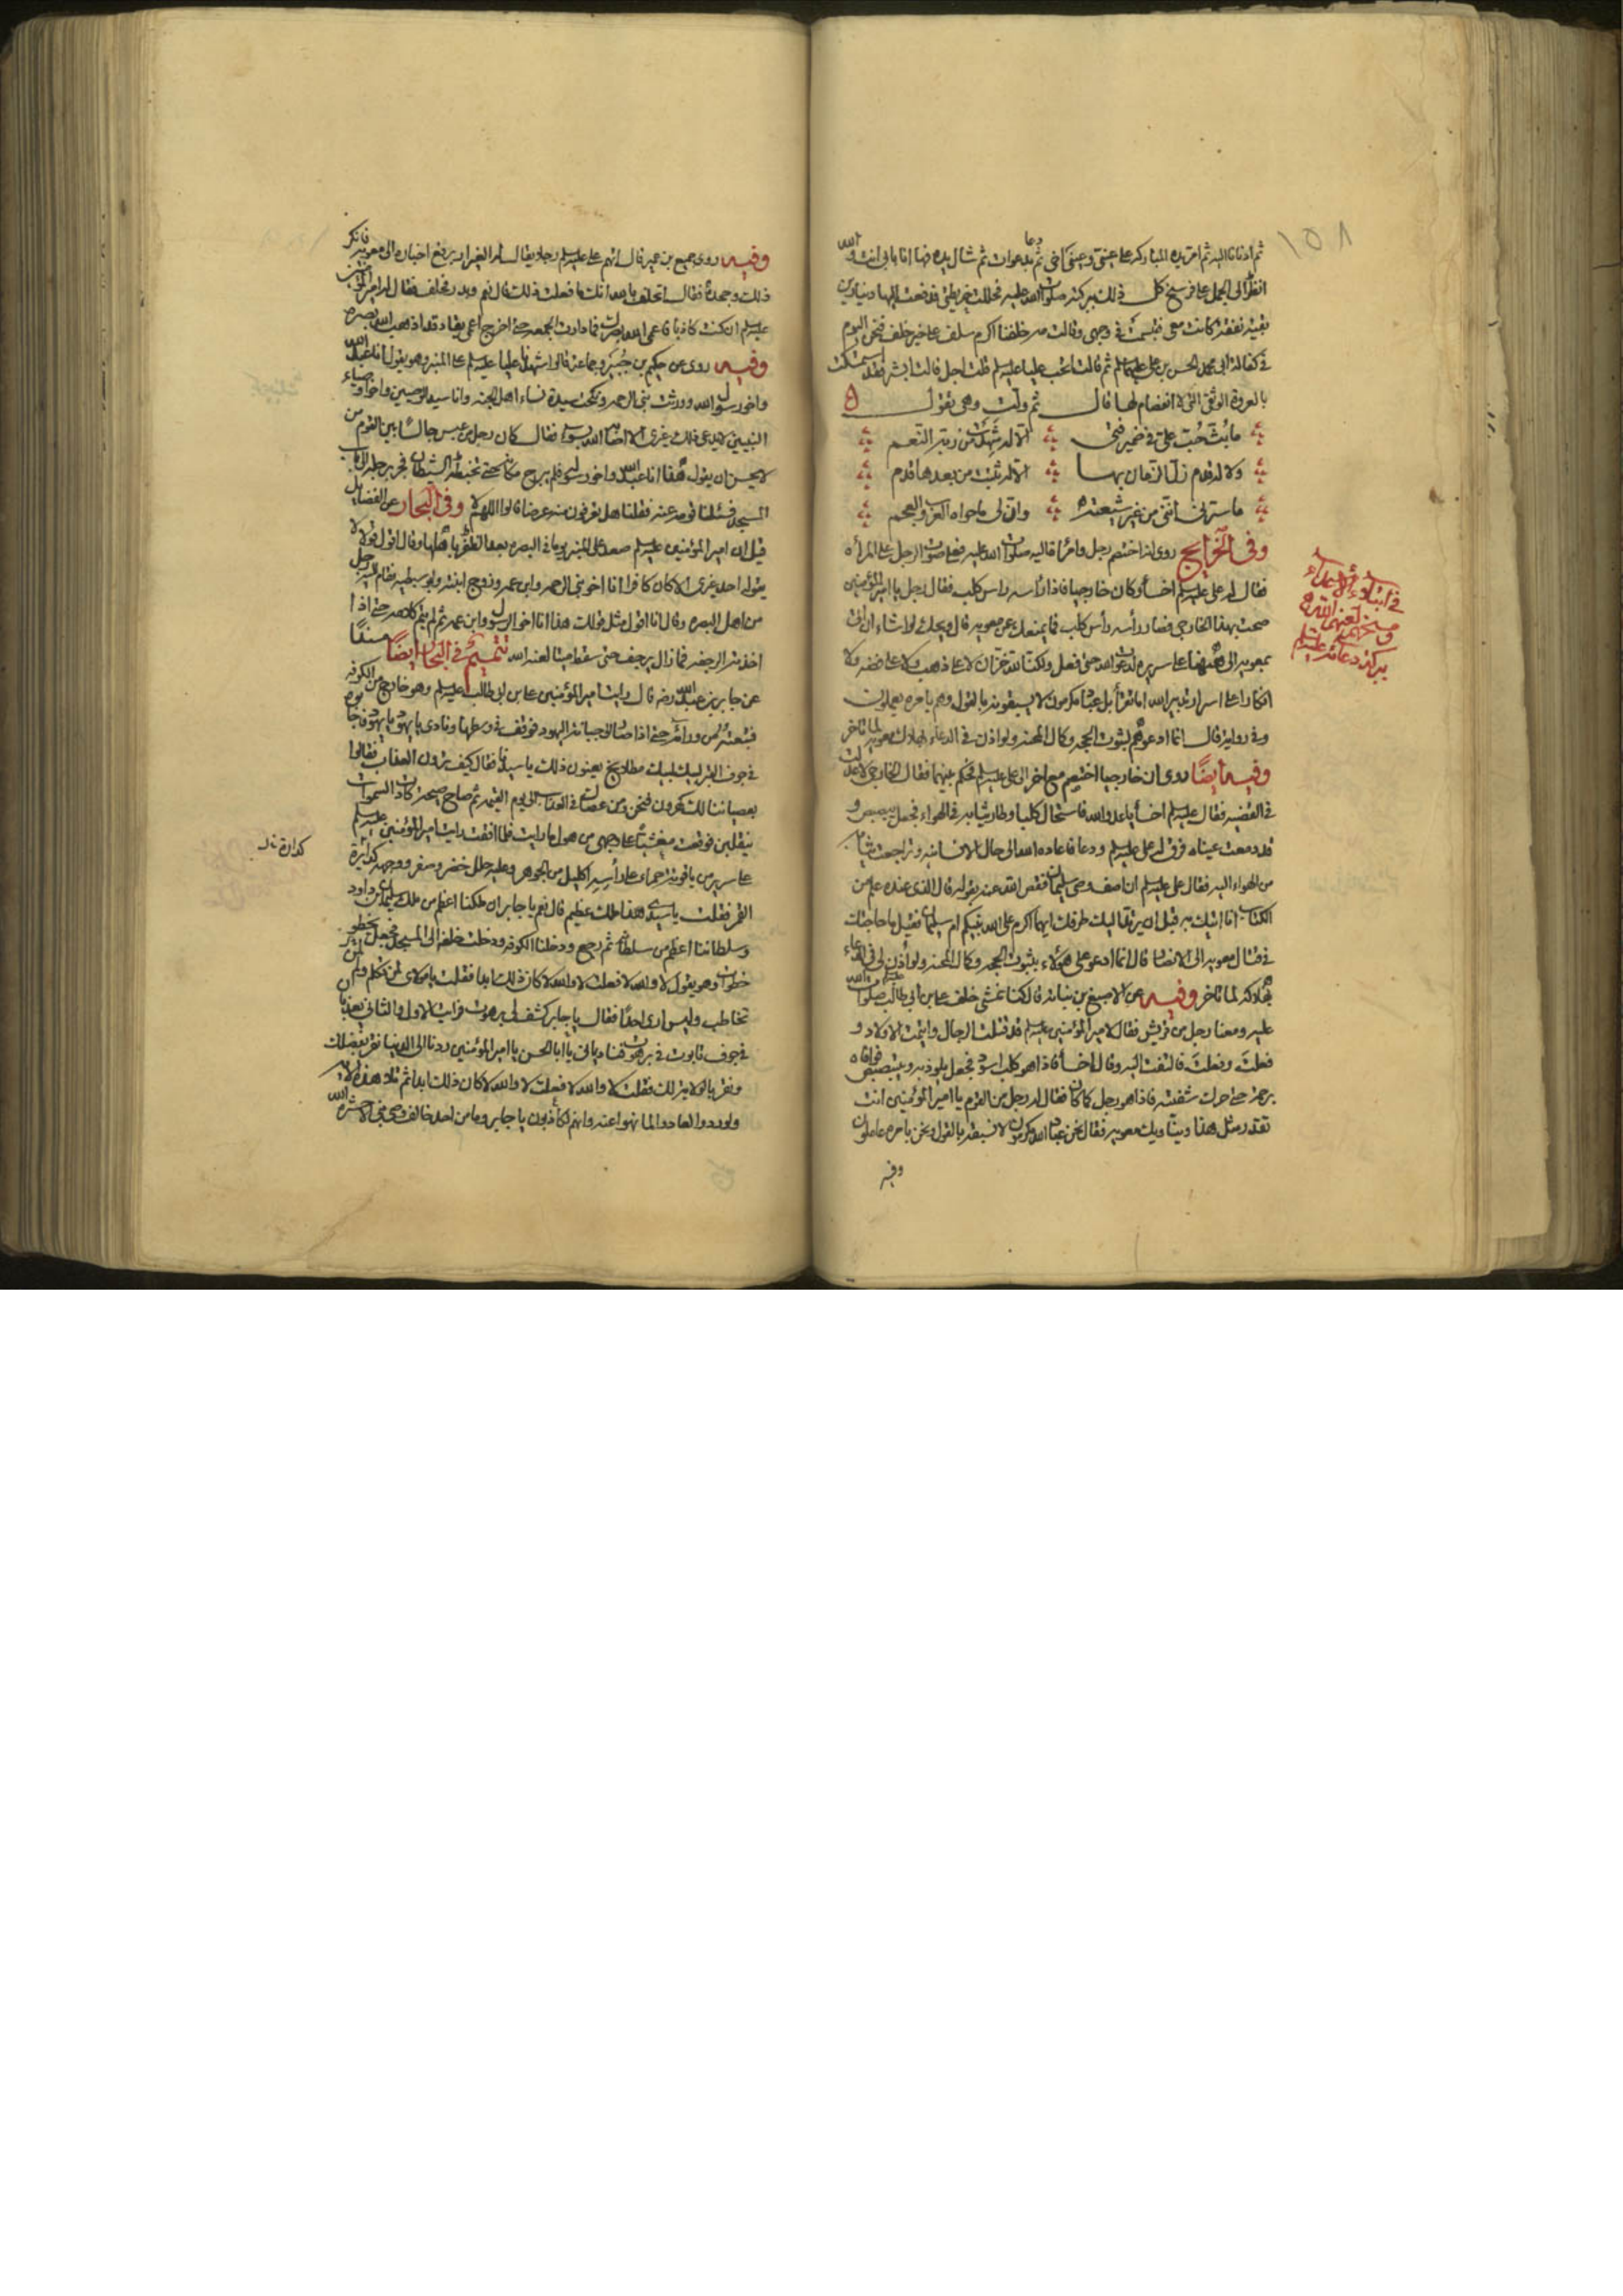 ١٥٨
ثم ادنانا اليه ثم امر يده المباركه على عينى وعينى اختى ثم دعا بدعوات ثم شال يده فها انا بابى انت والله
انظر الى الجمل على فرسخ كل ذلك ببركته صلوات الله عليه فحللت خريطتى فدفعت اليها دينارين
بقيه نفقه كانت معى فتبسمت فى وجهى وقالت مه خلفنا اكرم سلف على خير خلف فنحن اليوم
فى كفالة ابى محمد الحسن بن على عليهما السلم ثم قالت اتحب عليا عليه السلم قلت اجل قالت ابشر فقد استمسكت
بالعروة الوثقى التى لا انفصام لها قال ثم ولت وهى تقول
ما بث حب على فى ضمير فتى الا له شهدت من ربه النعم
ولا له قدم زل الزمان بها الا له ثبتت من بعدها قدم
ما سرنى اننى من غير شيعته وان لى ما حواه العرب والعجم
وفى الخرايج روى انه اختصم رجل وامراة اليه صلوات الله عليه فعلا صوت الرجل على المراه
فقال له على عليه السلم اخسأ وكان خارجيا فاذا راسه راس كلب فقال رجل يا امير المؤمنين
صحت بهذا الخارجى فصار رأسه رأس كلب فما يمنعك عن معويه قال ويحك لو اشاء ان اتى
بمعويه الى ههنا على سريره لدعوت الله حتى فعل ولكنا لله خزان لا على ذهب ولا على فضه ولا
انكارا على اسرار تدبير الله اما تقرأ بل عباد مكرمون لا يسبقونه بالقول وهم بامره يعملون
وفى رواية قال انما ادعوهم لثبوت الحجه وكمال المحنه ولو اذن فى الدعاء بهلاك معويه لما تاخر
وفيه ايضا روى ان خارجيا اختصم مع اخر الى على عليه السلم فحكم بينهما فقال الخارجى لا عدلت
فى القضيه فقال عليه السلم اخسأ يا عدو الله فاستحال كلبا وطار ثيابه فى الهواء فجعل يبصبص و
قد دمعت عيناه فرق له على عليه السلم ودعا فاعاده الله الى حال الانسانيه وتراجعت ثيابه
من الهواء اليه فقال على عليه السلم ان اصف وصى سليمان فقص الله عنه بقوله قال الذى عنده علم من
الكتاب انا اتيك به قبل ان يرتد اليك طرفك ايهما اكرم على الله نبيكم ام سليمان فقيل ما حاجتك
فى قتال معويه الى الانصار قال انما ادعو على هؤلاء بثبوت الحجه وكمال المحنه ولو أذن لى فى الدعاء
بهلاكه لما تاخر وفيه عن الاصبغ بن نباته قال كنا نمشى خلف على بن ابى طالب صلوات الله
عليه ومعنا رجل من قريش فقال لامير المؤمنين عليه السلم قد قتلت الرجال وايتمت الاولاد و
فعلت وفعلت فالتفت اليه وقال اخسأ فاذا هو كلب اسود فجعل يلوذ به ويبصبص فوافاه
برحمه حتى حرك شفتيه فاذا هو رجل كما كان فقال له رجل من القوم يا امير المؤمنين انت
تقدر مثل هذا ويناويك معويه فقال نحن عباد الله مكرمون لا نسبقه بالقول ونحن بامره عاملون
وفيه
فى ابتلاء الاعداء
ومسخهم لعنهم الله
ببركة دعائه عليه السلم
وفيه روى جميع بن عمير قال اتهم على عليه السلم رجلا يقال له الغيرار برفع اخباره الى معويه فانكر
ذلك وجحده فقال اتحلف بالله انك ما فعلت ذلك قال نعم وبدر فحلف فقال له امير المؤمنين
عليه السلم ان كنت كاذبا فاعمى الله بصرك فما دارت الجمعه حتى اخرج اعمى يقاد قد اذهب الله بصره
وفيه روى عن حكيم بن جبير وجماعة قالوا شهدنا عليا عليه السلم على المنبر وهو يقول انا عبد الله
واخو رسول الله وورثت نبى الرحمه ونكحت سيدة نساء اهل الجنه وانا سيد الوصيين واخر اوصياء
النبيين لا يدعى ذلك غيرى الا اصابه الله بسوء فقال رجل من عبس جالسا بين القوم من
لا يحسن ان يقول هذا انا عبد الله واخو رسوله فلم يبرح مكانه حتى تخبطه الشيطان فجر برجله الى باب
المسجد فسئلنا قومه عنه فقلنا هل تعرفون به عرضا قالوا اللهم لا وفى البحار عن الفضايل
قيل ان امير المؤمنين عليه السلم صعد على المنبر يوما فى البصره بعد الظفر باهلها وقال اقول قولا لا
يقوله احد غيرى الا كان كافرا انا اخو نبى الرحمه وابن عمه وزوج ابنته وابو سبطيه فقام اليه رجل
من اهل البصره وقال انا اقول مثل قولك هذا انا اخو الرسول وابن عمه ثم لم يتم كلامه حتى اذا
اخذته الرجفه فما زال يرجف حتى سقط ميتا لعنه الله تتميم فى البحار ايضا مسندا
عن جابر بن عبد الله رضه قال رايت امير المؤمنين على بن ابى طالب عليه السلم وهو خارج من الكوفه
فتبعته من ورائه حتى اذا صار الى جبانة اليهود فوقف فى وسطها ونادى يا يهود يا يهود فاجابوه
فى جوف القبر لبيك لبيك مطلايخ يعنون ذلك يا سيدنا فقال كيف ترون العذاب فقالوا
بعصياننا لك كهرون فنحن ومن عصاك فى العذاب الى يوم القيمه ثم صاح صيحة كادت السموات
ينقلبن فوقعت مغشيا على وجهى من هول ما رايت فلما افقت رايت امير المؤمنين عليه السلم
على سرير من ياقوته حمراء على رأسه اكليل من الجوهر وعليه حلل خضر وصفر ووجهه كدائرة
القمر فقلت يا سيدى هذا ملك عظيم قال نعم يا جابر ان ملكنا اعظم من ملك سليمان بن داود
وسلطاننا اعظم من سلطانه ثم رجع ودخلنا الكوفه ودخلت خلفه الى المسجد فجعل يخطو
خطوات وهو يقول لا والله لا فعلت لا والله لا كان ذلك ابدا فقلت يا مولاى لمن تكلم ولمن
تخاطب وليس ارى احدا فقال يا جابر كشف لى برهوت فرايت الاول والثانى يعذبان
فى جوف تابوت فى برهوت فنادياني يا ابا الحسن يا امير المؤمنين ردنا الى الدنيا نقر بفضلك
ونقر بالولاية لك فقلت لا والله لا فعلت لا والله لا كان ذلك ابدا ثم تلا هذه الايه
ولو ردوا لعادوا لما نهوا عنه وانهم لكاذبون يا جابر وما من احد خالف وصى نبى الا حشره الله
كدارة خ‌ل